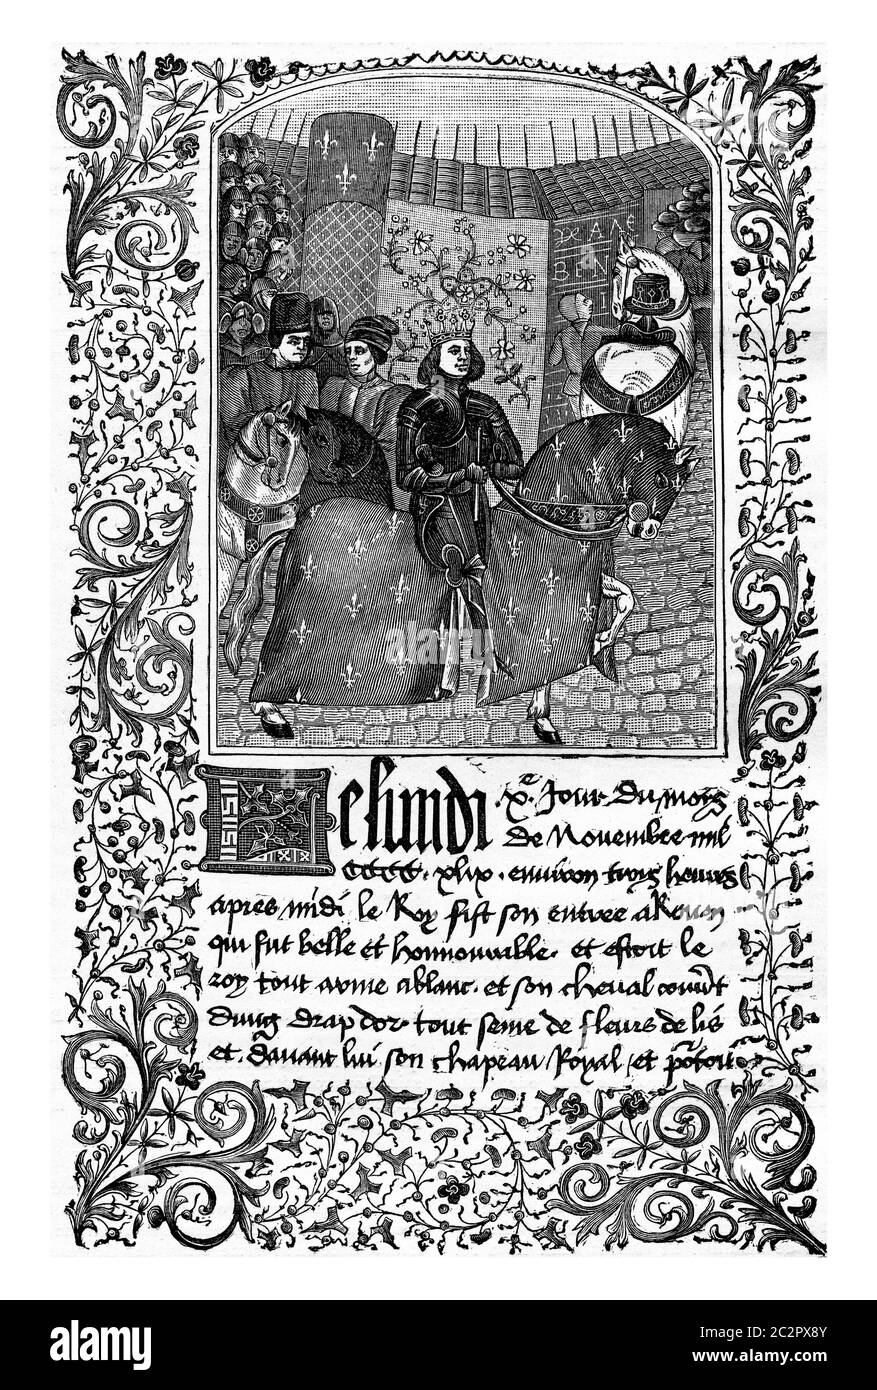 RANE
BEN
Le lundi · xe · Jour du moys
de Novembre mil
CCCC · xlix · environ troys heures
apres midi le Roy fist son entree a Rouen
qui fut belle et honnourable · et estoit le
roy tout arme a blanc · et son cheval couvert
dung drap dor · tout seme de fleurs de lis
et davant lui son chapeau Royal / et portoit
alamy
a
alamy
Image ID: 2C2PX8Y
www.alamy.com